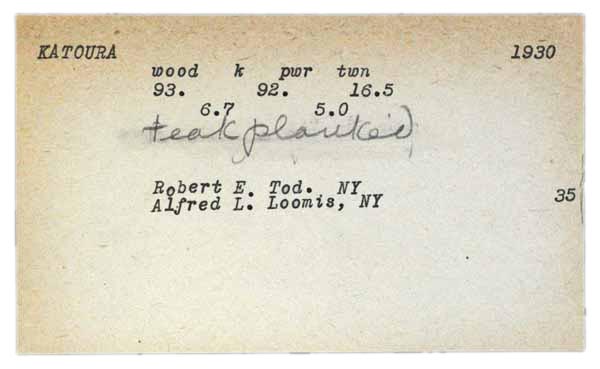 KATOURA 1930
wood k pwr twn
93. 92. 16.5
6.7 5.0
teak planked
Robert E. Tod. NY
Alfred L. Loomis, NY 35